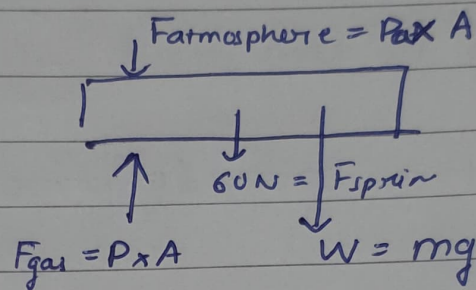 Fatmosphere = Pa x A
60N = Fsprin
Fgas = P x A
W = mg